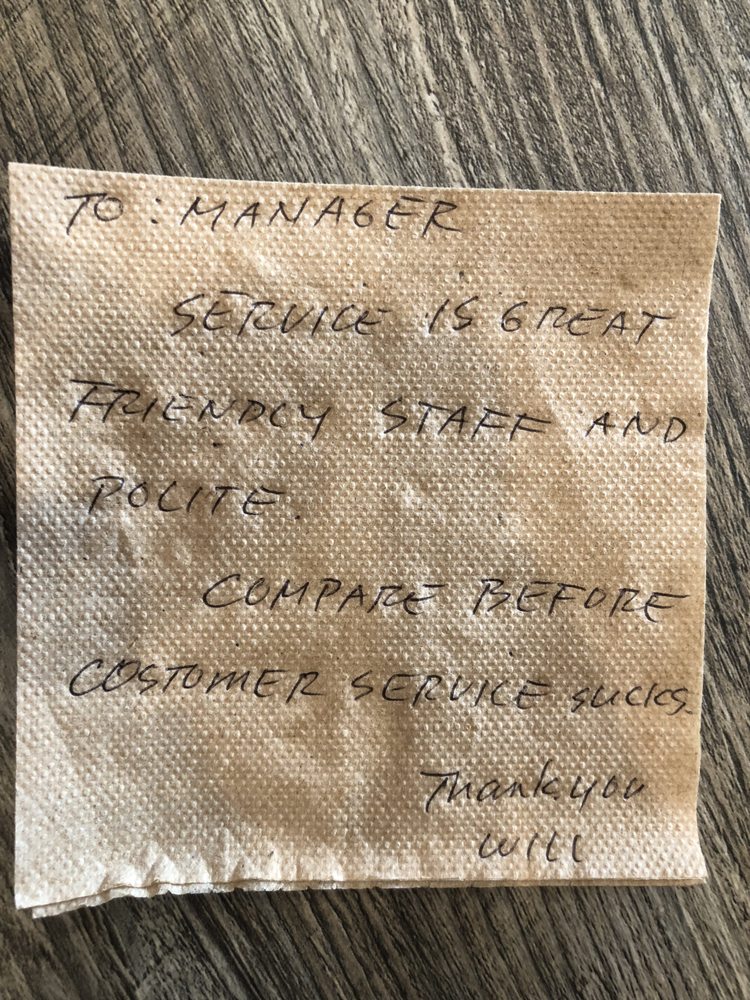 TO: MANAGER
SERVICE IS GREAT
FRIENDLY STAFF AND
POLITE.
COMPARE BEFORE
COSTOMER SERVICE SUCKS.
Thank you
WILL